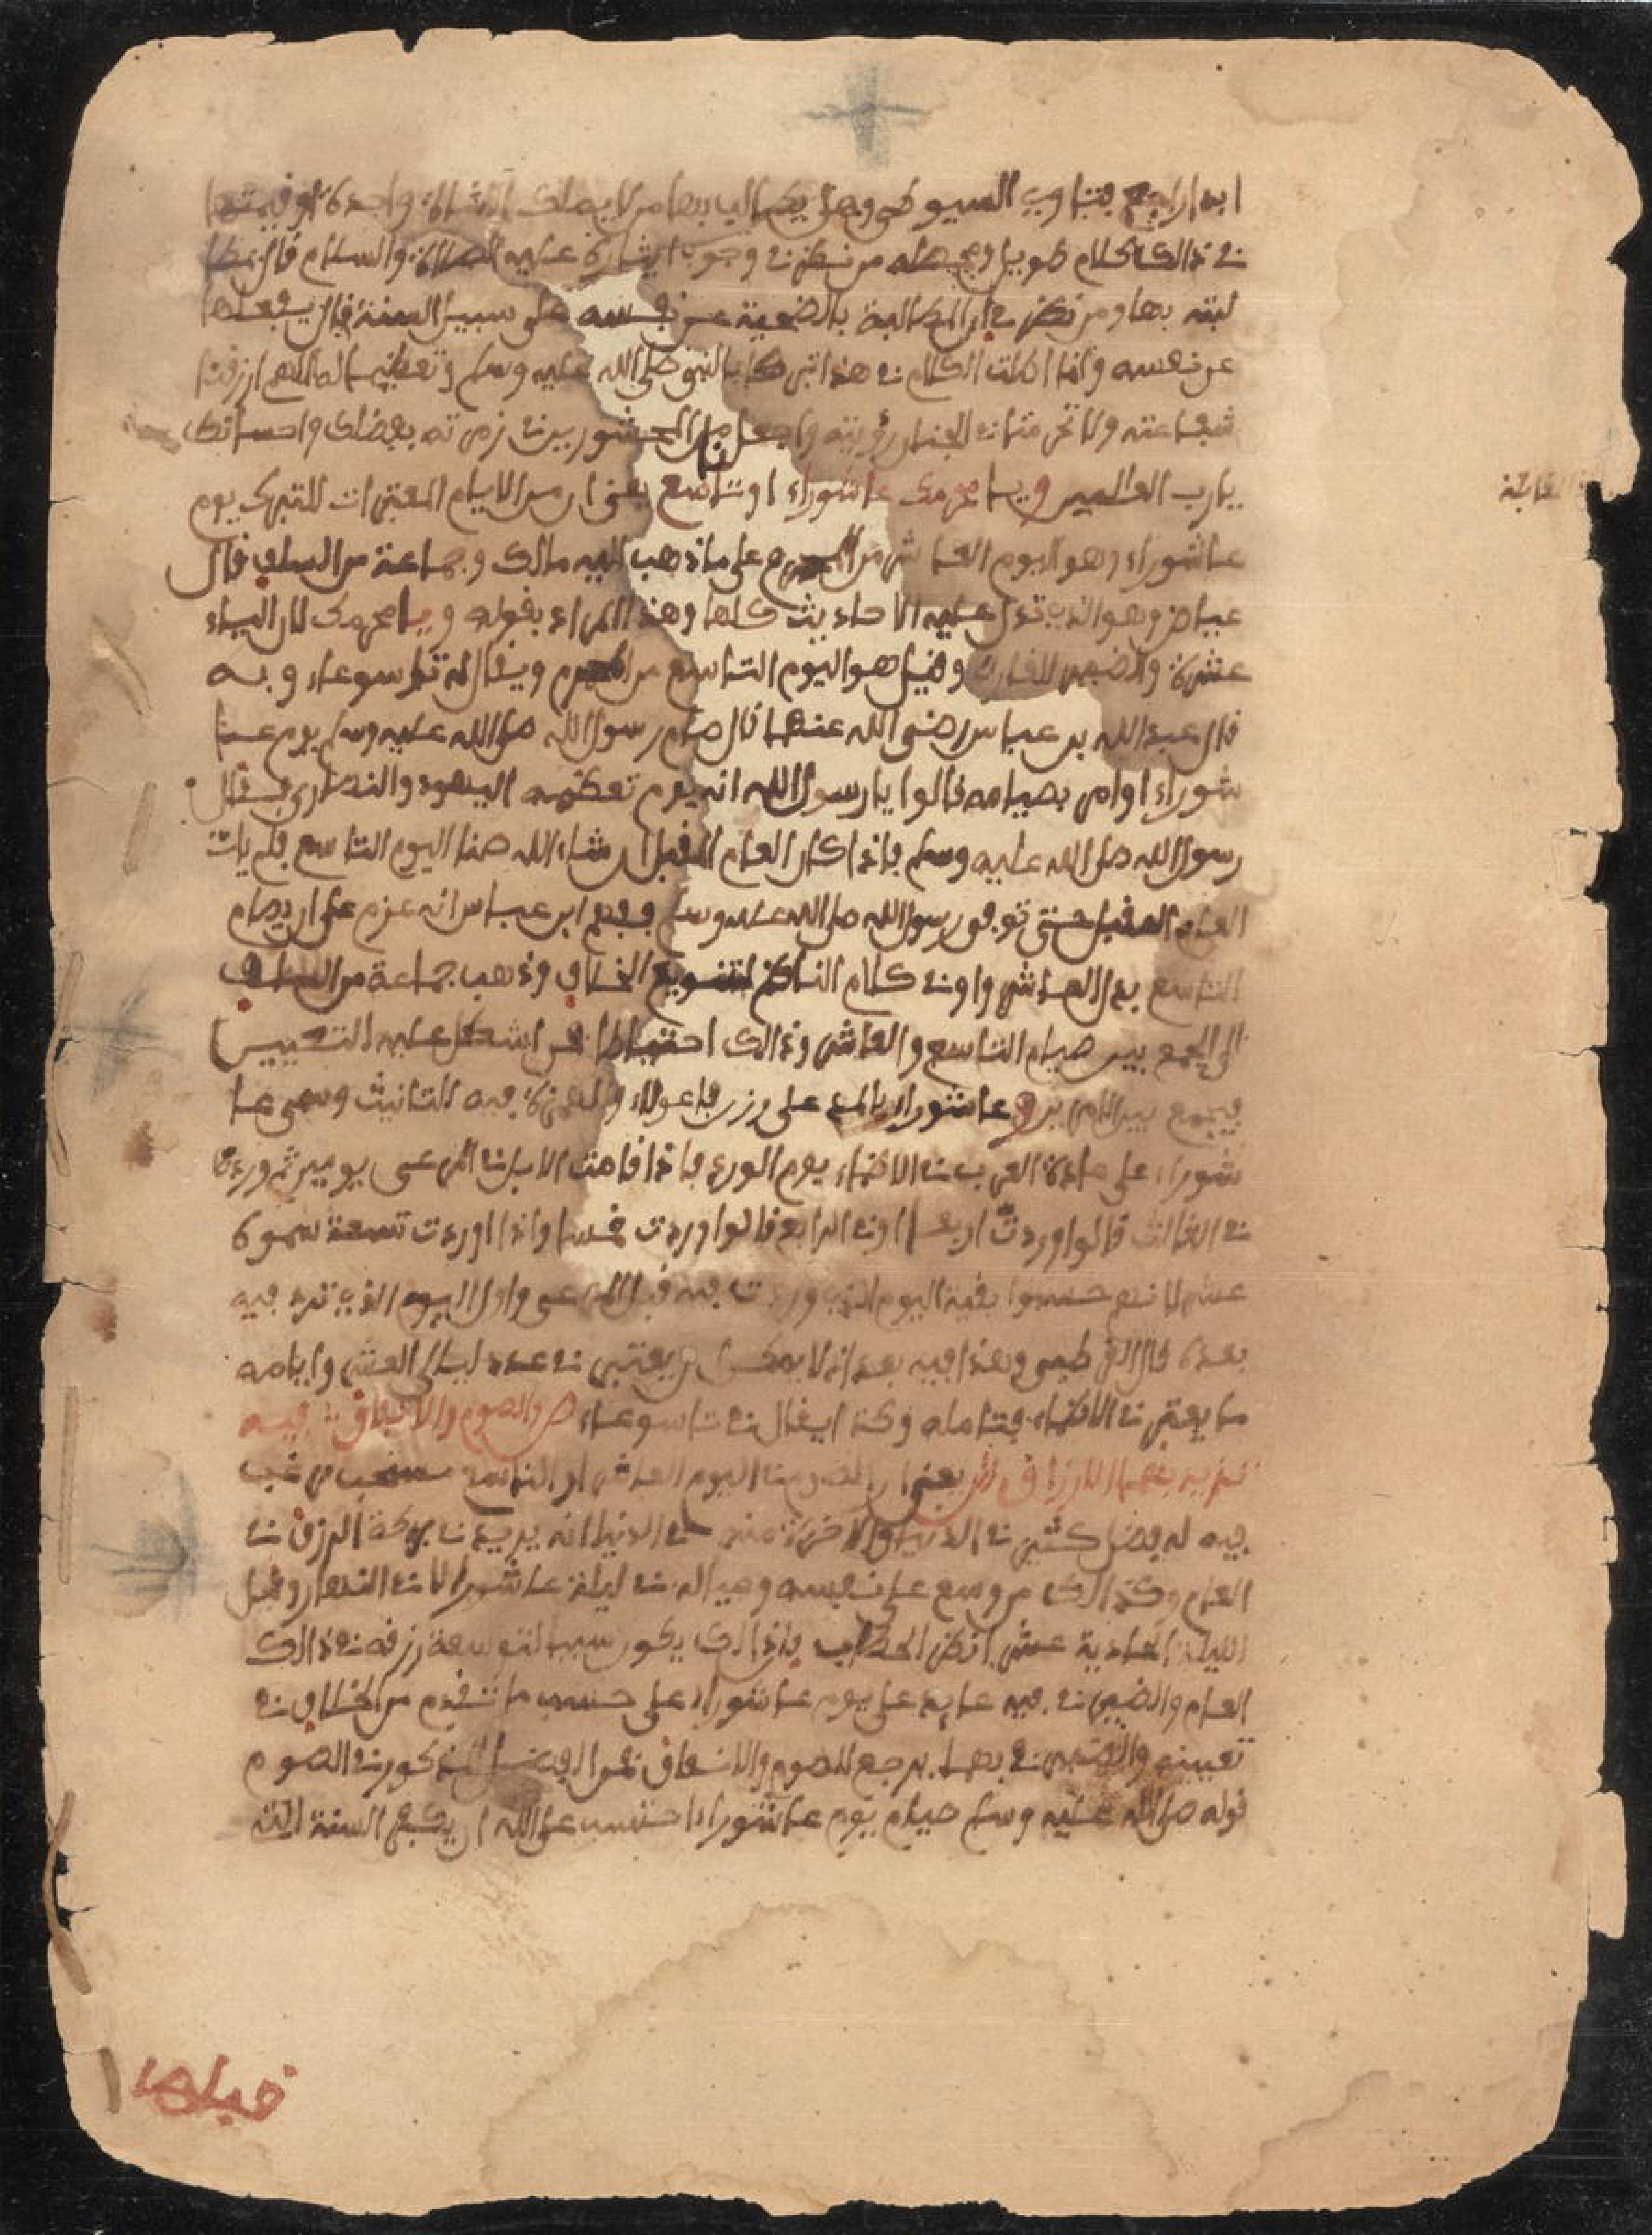 في ذالك كلام طويل من نظر في وجوب عليه الصلاة والسلام
بها ومن نظر المطالبة بالضحية عن نفسه على سبيل السنة قال يفعلها
عن نفسه وانما اطلت الكلام في هذا تبركا بالنبي صلى الله عليه وسلم وتعظيما له اللهم ارزقنا
شفاعته ولا تحرمنا في الجنان رؤيته واجعلنا من المحشورين في زمرته بفضلك واحسانك
يارب العالمين ويا محرمك عاشوراء او تاسع يعني ان من الايام المعتبرات للتبرك يوم
عاشوراء وهو اليوم العاشر من المحرم على ما ذهب اليه مالك وجماعة من السلف قال
عياض وهو الذي تدل عليه الاحاديث كلها وهذا المراد بقوله ويا محرمك لان الياء
عشرة والضمير للقارئ وقيل هو اليوم التاسع من المحرم ويقال له تاسوعاء وبه
قال عبد الله بن عباس رضي الله عنهما قال صام رسول الله صلى الله عليه وسلم يوم عا
شوراء اوامر بصيامه قالوا يا رسول الله انه يوم تعظمه اليهود والنصارى فقال
رسول الله صلى الله عليه وسلم فاذا كان العام المقبل ان شاء الله صمنا اليوم التاسع فلم يات
العام المقبل حتى توفي رسول الله صلى الله عليه وسلم ففهم ابن عباس انه عزم على ان يصام
التاسع بدل العاشر واو في كلام الناظم لتنويع الخلاف وذهب جماعة من السلف
الى الجمع بين صيام التاسع والعاشر وذالك احتياطا لمن اشكل عليه التعيين
فيجمع بين الامرين وعاشوراء بالمد على وزن فاعولاء والهمزة فيه للتانيث وسمي عا
شوراء على عادة العرب في الاظماء يوم الورد فاذا قامت الابل في المرعى يومين ثم وردت
في الثالث قالوا وردت اربعا او في الرابع قالوا وردت خمسا واذا اوردت تسعة سموه
عشرا لانهم حسبوا بقية اليوم الذي وردت فيه قبل المرعى واول اليوم الذي ترد فيه
بعده قال القرطبي وهذا فيه بعد اذ لا يمكن ان يعتبر في عدد ليالي العشر وايامه
ما يعتبر في الاظماء فتامله وكذا يقال في تاسوعاء ص والصوم والانفاق فيه
تزيد بهما الارزاق ش يعني ان الصوم في اليوم العاشر او التاسع مستحب مرغب
فيه له فضل كثير في الدنيا والاخرة منه في الدنيا انه يزيد في بركة الرزق في
العام وكذالك من وسع على نفسه وعياله في ليلة عاشوراء لا في النهار وقيل
الليلة الحادية عشر انظر الحطاب فان ذالك يكون سببا لتوسعة رزقه في ذالك
العام والضمير في فيه عايد على يوم عاشوراء على حسب ما تقدم من الخلاف في
تعيينه والضمير في بهما يرجع للصوم والانفاق فمن الفضل المذكور في الصوم
قوله صلى الله عليه وسلم صيام يوم عاشوراء احتسب على الله ان يكفر السنة التي
قبلها